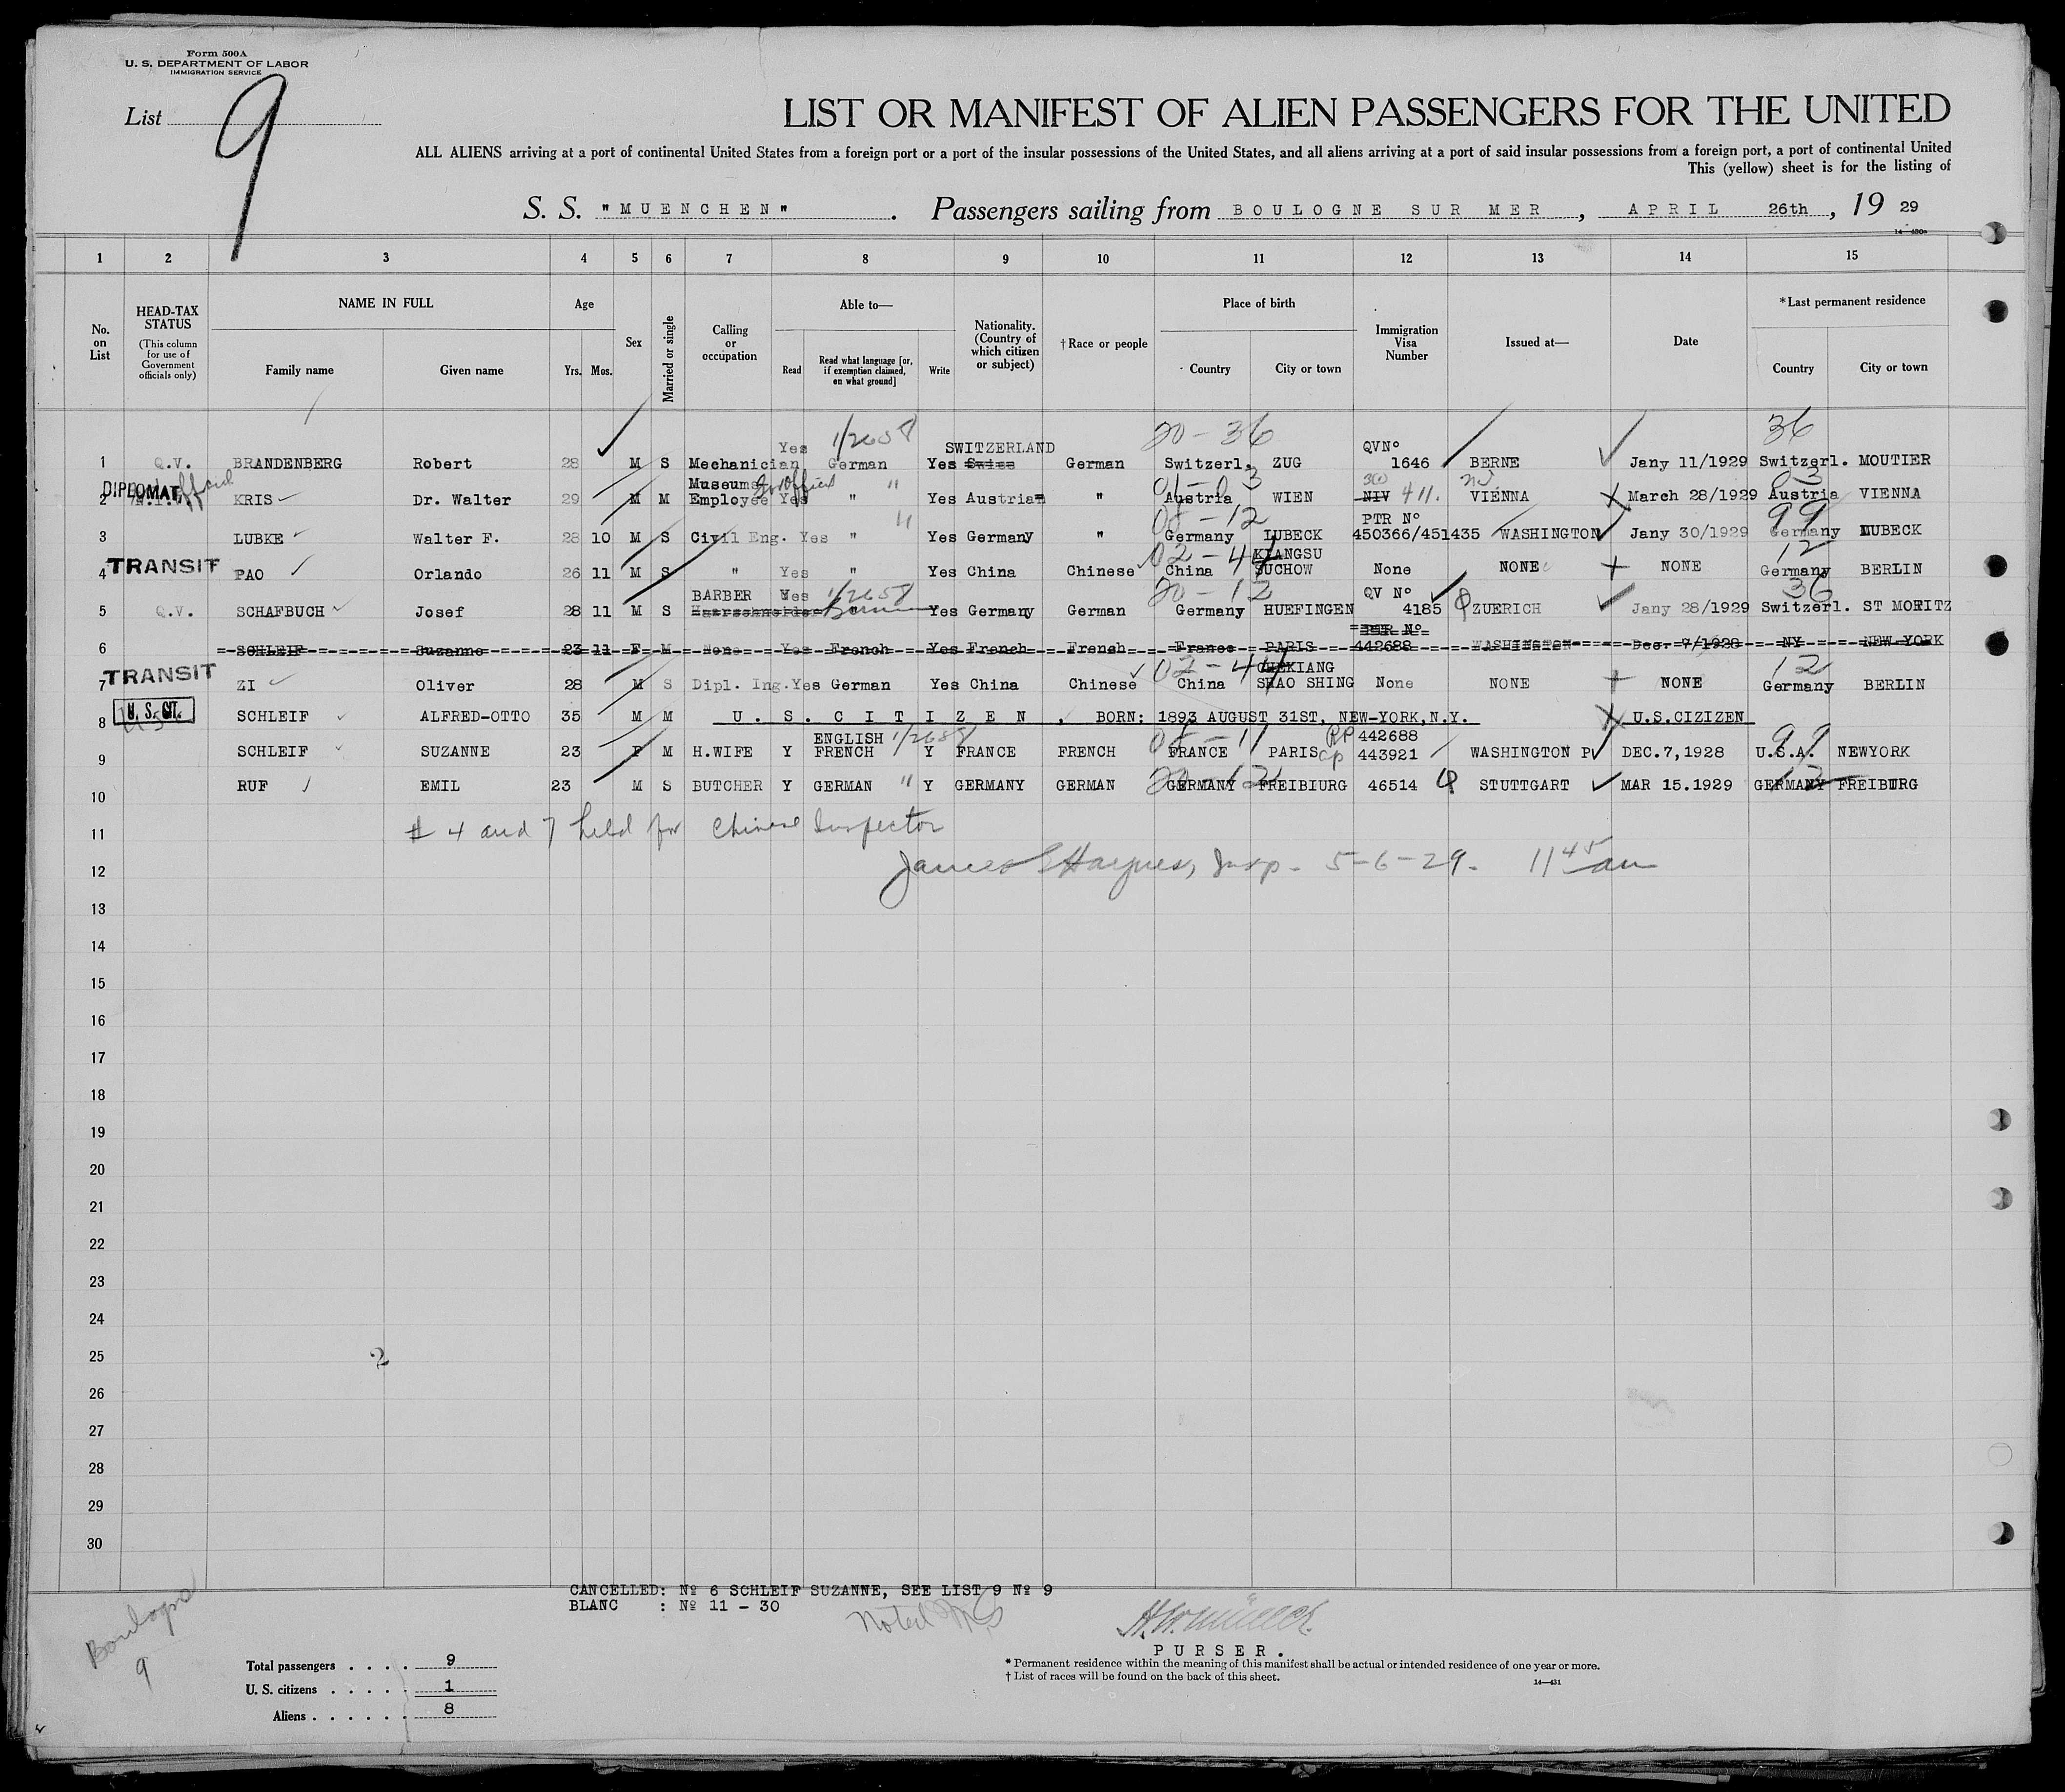 Form 500A
U. S. DEPARTMENT OF LABOR
IMMIGRATION SERVICE
List 9
LIST OR MANIFEST OF ALIEN PASSENGERS FOR THE UNITED
ALL ALIENS arriving at a port of continental United States from a foreign port or a port of the insular possessions of the United States, and all aliens arriving at a port of said insular possessions from a foreign port, a port of continental United
This (yellow) sheet is for the listing of
S. S. "MUENCHEN". Passengers sailing from BOULOGNE SUR MER, APRIL 26th, 19 29
1 2 3 4 5 6 7 8 9 10 11 12 13 14 15
No. on List
HEAD-TAX STATUS
(This column for use of Government officials only)
NAME IN FULL
Family name Given name
Age
Yrs. Mos.
Sex
Married or single
Calling or occupation
Able to—
Read
Read what language [or, if exemption claimed, on what ground]
Write
Nationality. (Country of which citizen or subject)
†Race or people
Place of birth
Country City or town
Immigration Visa Number
Issued at—
Date
*Last permanent residence
Country City or town
Yes 1/2658 SWITZERLAND 20-36 QVNº 36
1 Q.V. BRANDENBERG Robert 28 M S Mechanician German Yes Swiss German Switzerl. ZUG 1646 BERNE Jany 11/1929 Switzerl. MOUTIER
DIPLOMAT Museums " 01-03 03
2 KRIS Dr. Walter 29 M M Employee Yes " Yes Austrian " Austria WIEN NIV 411. VIENNA March 28/1929 Austria VIENNA
" 08-12 PTR Nº 99
3 LUBKE Walter F. 28 10 M S Civil Eng. Yes " Yes Germany " Germany LUBECK 450366/451435 WASHINGTON Jany 30/1929 Germany LUBECK
TRANSIT 02-44 KIANGSU 12
4 PAO Orlando 26 11 M S " Yes " Yes China Chinese China SUCHOW None NONE NONE Germany BERLIN
BARBER Yes 1/2658 20-12 QV Nº 36
5 Q.V. SCHAFBUCH Josef 28 11 M S Haarschneider " Yes Germany German Germany HUEFINGEN 4185 ZUERICH Jany 28/1929 Switzerl. ST MORITZ
PTR Nº
6 SCHLEIF Suzanne 23 11 F M None Yes French Yes French French France PARIS 442688 WASHINGTON Dec. 7/1928 NY NEW-YORK
TRANSIT 02-44 CHEKIANG 12
7 ZI Oliver 28 M S Dipl. Ing. Yes German Yes China Chinese China SHAO SHING None NONE NONE Germany BERLIN
8 U. S. CIT. SCHLEIF ALFRED-OTTO 35 M M U. S. CITIZEN, BORN: 1893 AUGUST 31ST, NEW-YORK,N.Y. U.S.CIZIZEN
ENGLISH 1/2688 08-11 RP 442688 99
9 SCHLEIF SUZANNE 23 F M H.WIFE Y FRENCH Y FRANCE FRENCH FRANCE PARIS 443921 WASHINGTON DEC.7,1928 U.S.A. NEWYORK
20-12 12
10 RUF EMIL 23 M S BUTCHER Y GERMAN " Y GERMANY GERMAN GERMANY FREIBIURG 46514 STUTTGART MAR 15.1929 GERMANY FREIBURG
11 # 4 and 7 held for Chinese Inspector
12 James Insp. 5-6-29. 11 45 am
13
14
15
16
17
18
19
20
21
22
23
24
25 2
26
27
28
29
30
CANCELLED: Nº 6 SCHLEIF SUZANNE, SEE LIST 9 Nº 9
BLANC : Nº 11 - 30
Noted
Boulogne
9
PURSER.
Total passengers . . . . 9
U. S. citizens . . . . . 1
Aliens . . . . . . 8
* Permanent residence within the meaning of this manifest shall be actual or intended residence of one year or more.
† List of races will be found on the back of this sheet.
14—431